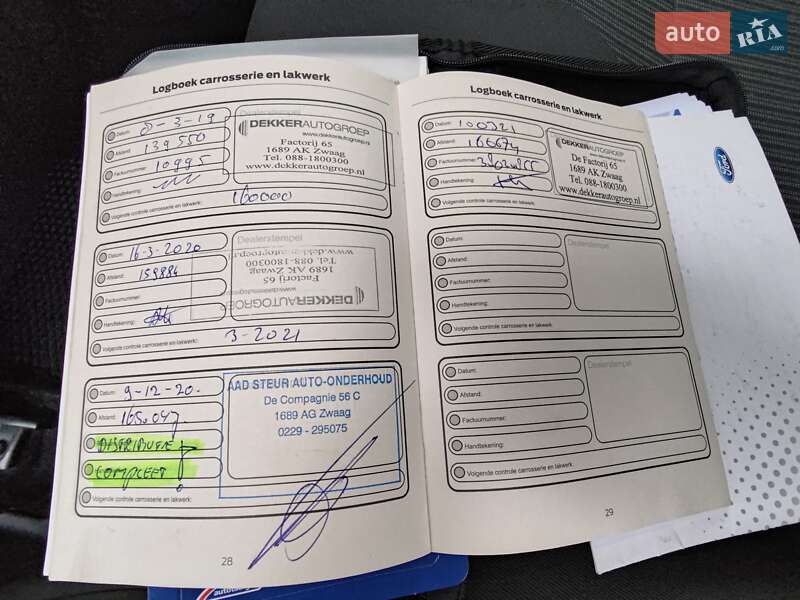 auto RIA .com
Logboek carrosserie en lakwerk
Datum: 8-3-19
Afstand: 139550
Factuurnummer: 10995
Handtekening:
Volgende controle carrosserie en lakwerk: 160000
Dealerstempel
DEKKERAUTOGROEP
www.dekkerautogroep.nl
Factorij 65
1689 AK Zwaag
Tel. 088-1800300
www.dekkerautogroep.nl
Datum: 16-3-2020
Afstand: 159884
Factuurnummer:
Handtekening:
Volgende controle carrosserie en lakwerk: 3-2021
Dealerstempel
DEKKERAUTOGROEP
www.dekkerautogroep.nl
Factorij 65
1689 AK Zwaag
Tel. 088-1800300
www.dekkerautogroep.nl
Datum: 9-12-20.
Afstand: 165.047.
DISTRIBUTIE
COMPLEET!
Volgende controle carrosserie en lakwerk:
AAD STEUR AUTO-ONDERHOUD
De Compagnie 56 C
1689 AG Zwaag
0229 - 295075
28
Logboek carrosserie en lakwerk
Datum: 100321
Afstand: 166674
Factuurnummer:
Handtekening:
Volgende controle carrosserie en lakwerk:
DEKKERAUTOGROEP
De Factorij 65
1689 AK Zwaag
Tel. 088-1800300
www.dekkerautogroep.nl
Datum:
Afstand:
Factuurnummer:
Handtekening:
Volgende controle carrosserie en lakwerk:
Dealerstempel
Datum:
Afstand:
Factuurnummer:
Handtekening:
Volgende controle carrosserie en lakwerk:
Dealerstempel
29
Ford